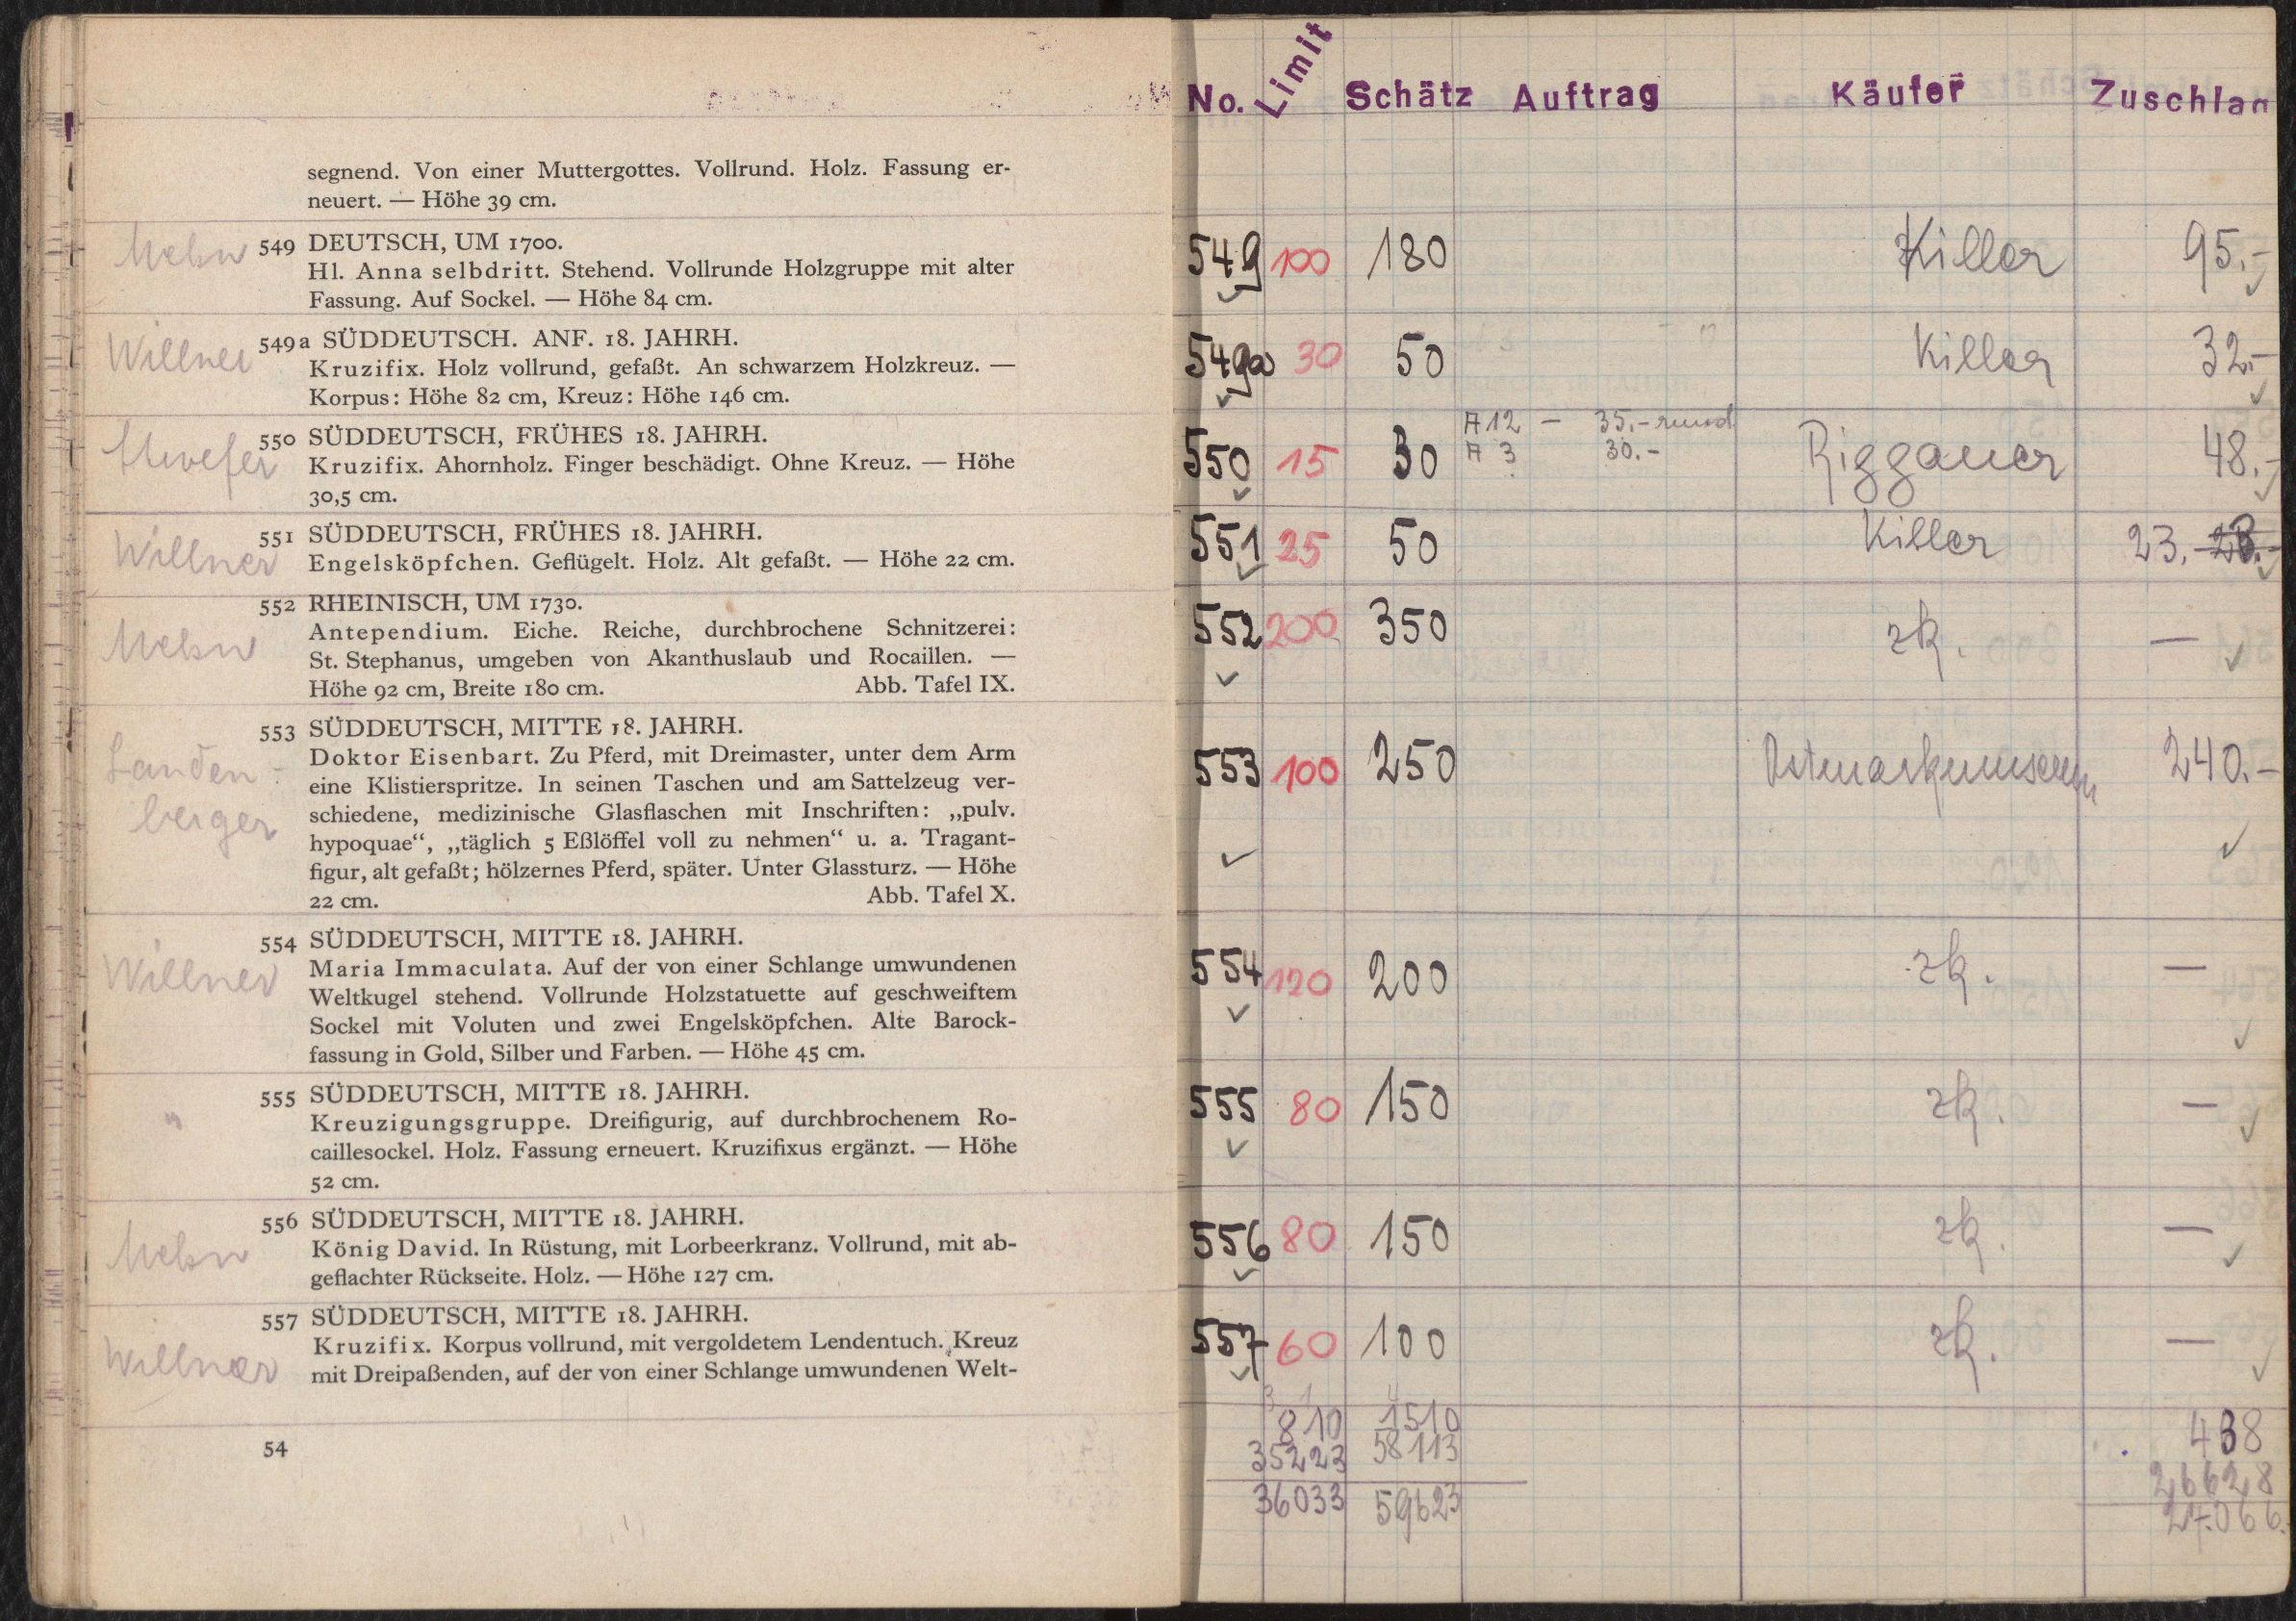 segnend. Von einer Muttergottes. Vollrund. Holz. Fassung er-
neuert. — Höhe 39 cm.
549 DEUTSCH, UM 1700.
Hl. Anna selbdritt. Stehend. Vollrunde Holzgruppe mit alter
Fassung. Auf Sockel. — Höhe 84 cm.
Willner
549a SÜDDEUTSCH. ANF. 18. JAHRH.
Kruzifix. Holz vollrund, gefaßt. An schwarzem Holzkreuz. —
Korpus: Höhe 82 cm, Kreuz: Höhe 146 cm.
550 SÜDDEUTSCH, FRÜHES 18. JAHRH.
Kruzifix. Ahornholz. Finger beschädigt. Ohne Kreuz. — Höhe
30,5 cm.
Willner
551 SÜDDEUTSCH, FRÜHES 18. JAHRH.
Engelsköpfchen. Geflügelt. Holz. Alt gefaßt. — Höhe 22 cm.
552 RHEINISCH, UM 1730.
Antependium. Eiche. Reiche, durchbrochene Schnitzerei:
St. Stephanus, umgeben von Akanthuslaub und Rocaillen. —
Höhe 92 cm, Breite 180 cm. Abb. Tafel IX.
Landen-
berger
553 SÜDDEUTSCH, MITTE 18. JAHRH.
Doktor Eisenbart. Zu Pferd, mit Dreimaster, unter dem Arm
eine Klistierspritze. In seinen Taschen und am Sattelzeug ver-
schiedene, medizinische Glasflaschen mit Inschriften: „pulv.
hypoquae“, „täglich 5 Eßlöffel voll zu nehmen“ u. a. Tragant-
figur, alt gefaßt; hölzernes Pferd, später. Unter Glassturz. — Höhe
22 cm. Abb. Tafel X.
Willner
554 SÜDDEUTSCH, MITTE 18. JAHRH.
Maria Immaculata. Auf der von einer Schlange umwundenen
Weltkugel stehend. Vollrunde Holzstatuette auf geschweiftem
Sockel mit Voluten und zwei Engelsköpfchen. Alte Barock-
fassung in Gold, Silber und Farben. — Höhe 45 cm.
"
555 SÜDDEUTSCH, MITTE 18. JAHRH.
Kreuzigungsgruppe. Dreifigurig, auf durchbrochenem Ro-
caillesockel. Holz. Fassung erneuert. Kruzifixus ergänzt. — Höhe
52 cm.
556 SÜDDEUTSCH, MITTE 18. JAHRH.
König David. In Rüstung, mit Lorbeerkranz. Vollrund, mit ab-
geflachter Rückseite. Holz. — Höhe 127 cm.
Willner
557 SÜDDEUTSCH, MITTE 18. JAHRH.
Kruzifix. Korpus vollrund, mit vergoldetem Lendentuch. Kreuz
mit Dreipaßenden, auf der von einer Schlange umwundenen Welt-
54
No. Limit Schätz Auftrag Käufer Zuschlag
549 100 180 Killer 95.-
549a 30 50 Killer 32.-
550 15 30 A 12 - 35.- rund Riggauer 48.-
A 3 30.-
551 25 50 Killer 23.-
552 200 350 zk. —
553 100 250 Ostmarkmuseum 240.-
554 120 200 zk. —
555 80 150 zk. —
556 80 150 zk. —
557 60 100 zk. —
810 1510 438
35223 58113 26628
36033 59623 27.066.